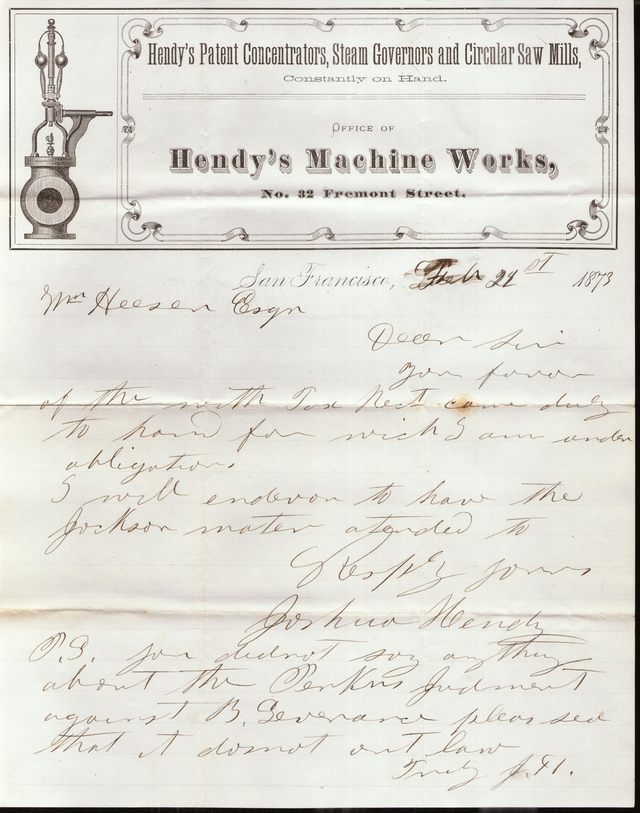 Hendy's Patent Concentrators, Steam Governors and Circular Saw Mills,
Constantly on Hand.
Office of
Hendy's Machine Works,
No. 32 Fremont Street.
San Francisco, Feb 21st 1873
Wm Heesen Esqr
Dear Sir
Your favor
of the with Tax Rect came duly
to hand for wich I am under
obligations
I will endevor to have the
Jackson mater atended to
Respy yours
Joshua Hendy
P.S. you didnot say anything
about the Perkins Judment
against B. Severance pleas see
that it dosnot out law
Truly J.H.